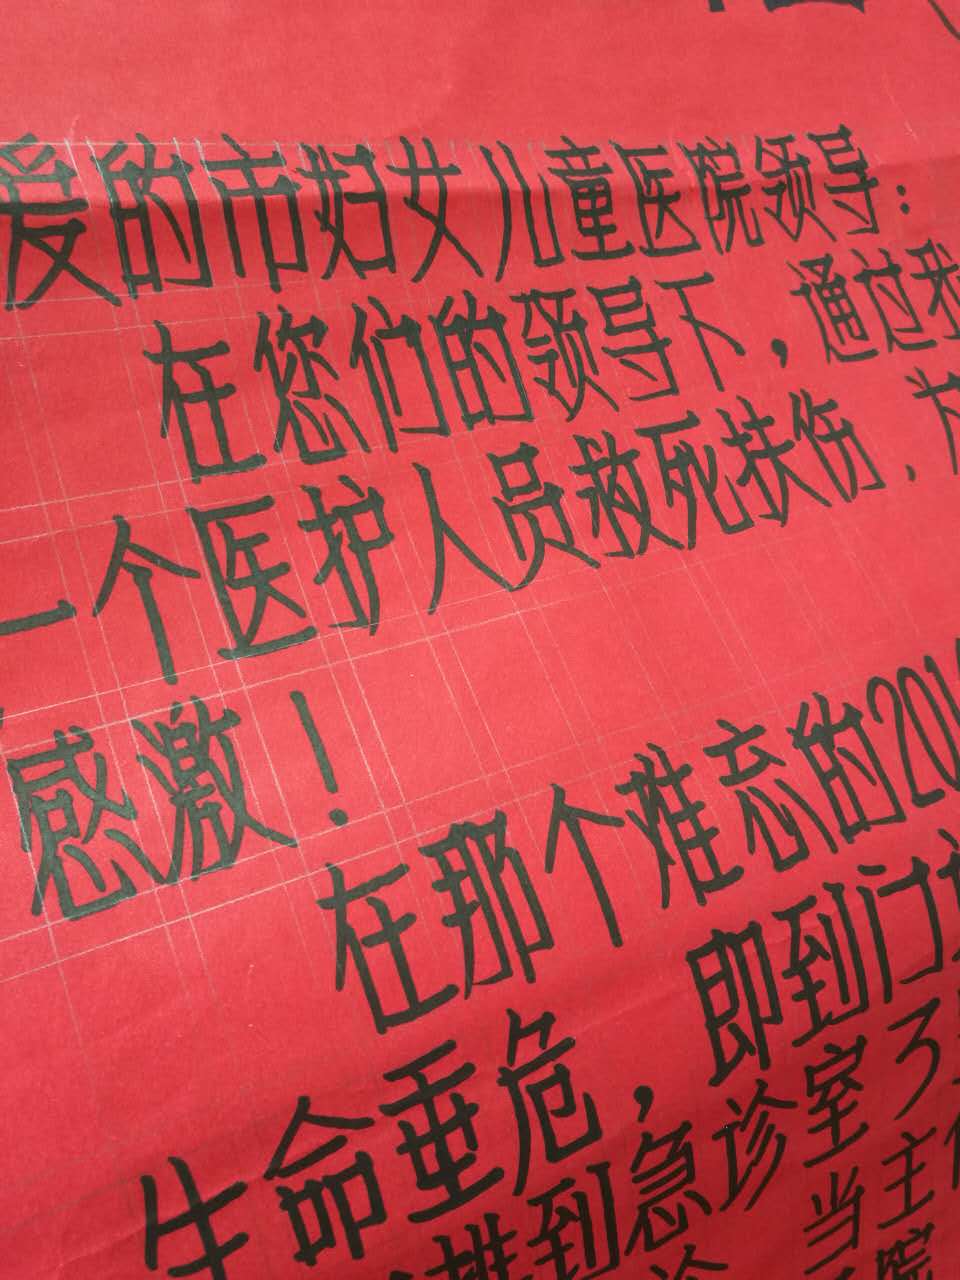 爱的市妇女儿童医院领导：
在您们的领导下，通过我
一个医护人员救死扶伤、
感激！
在那个难忘的201
生命垂危，即到门
推到急诊室了
当主
院